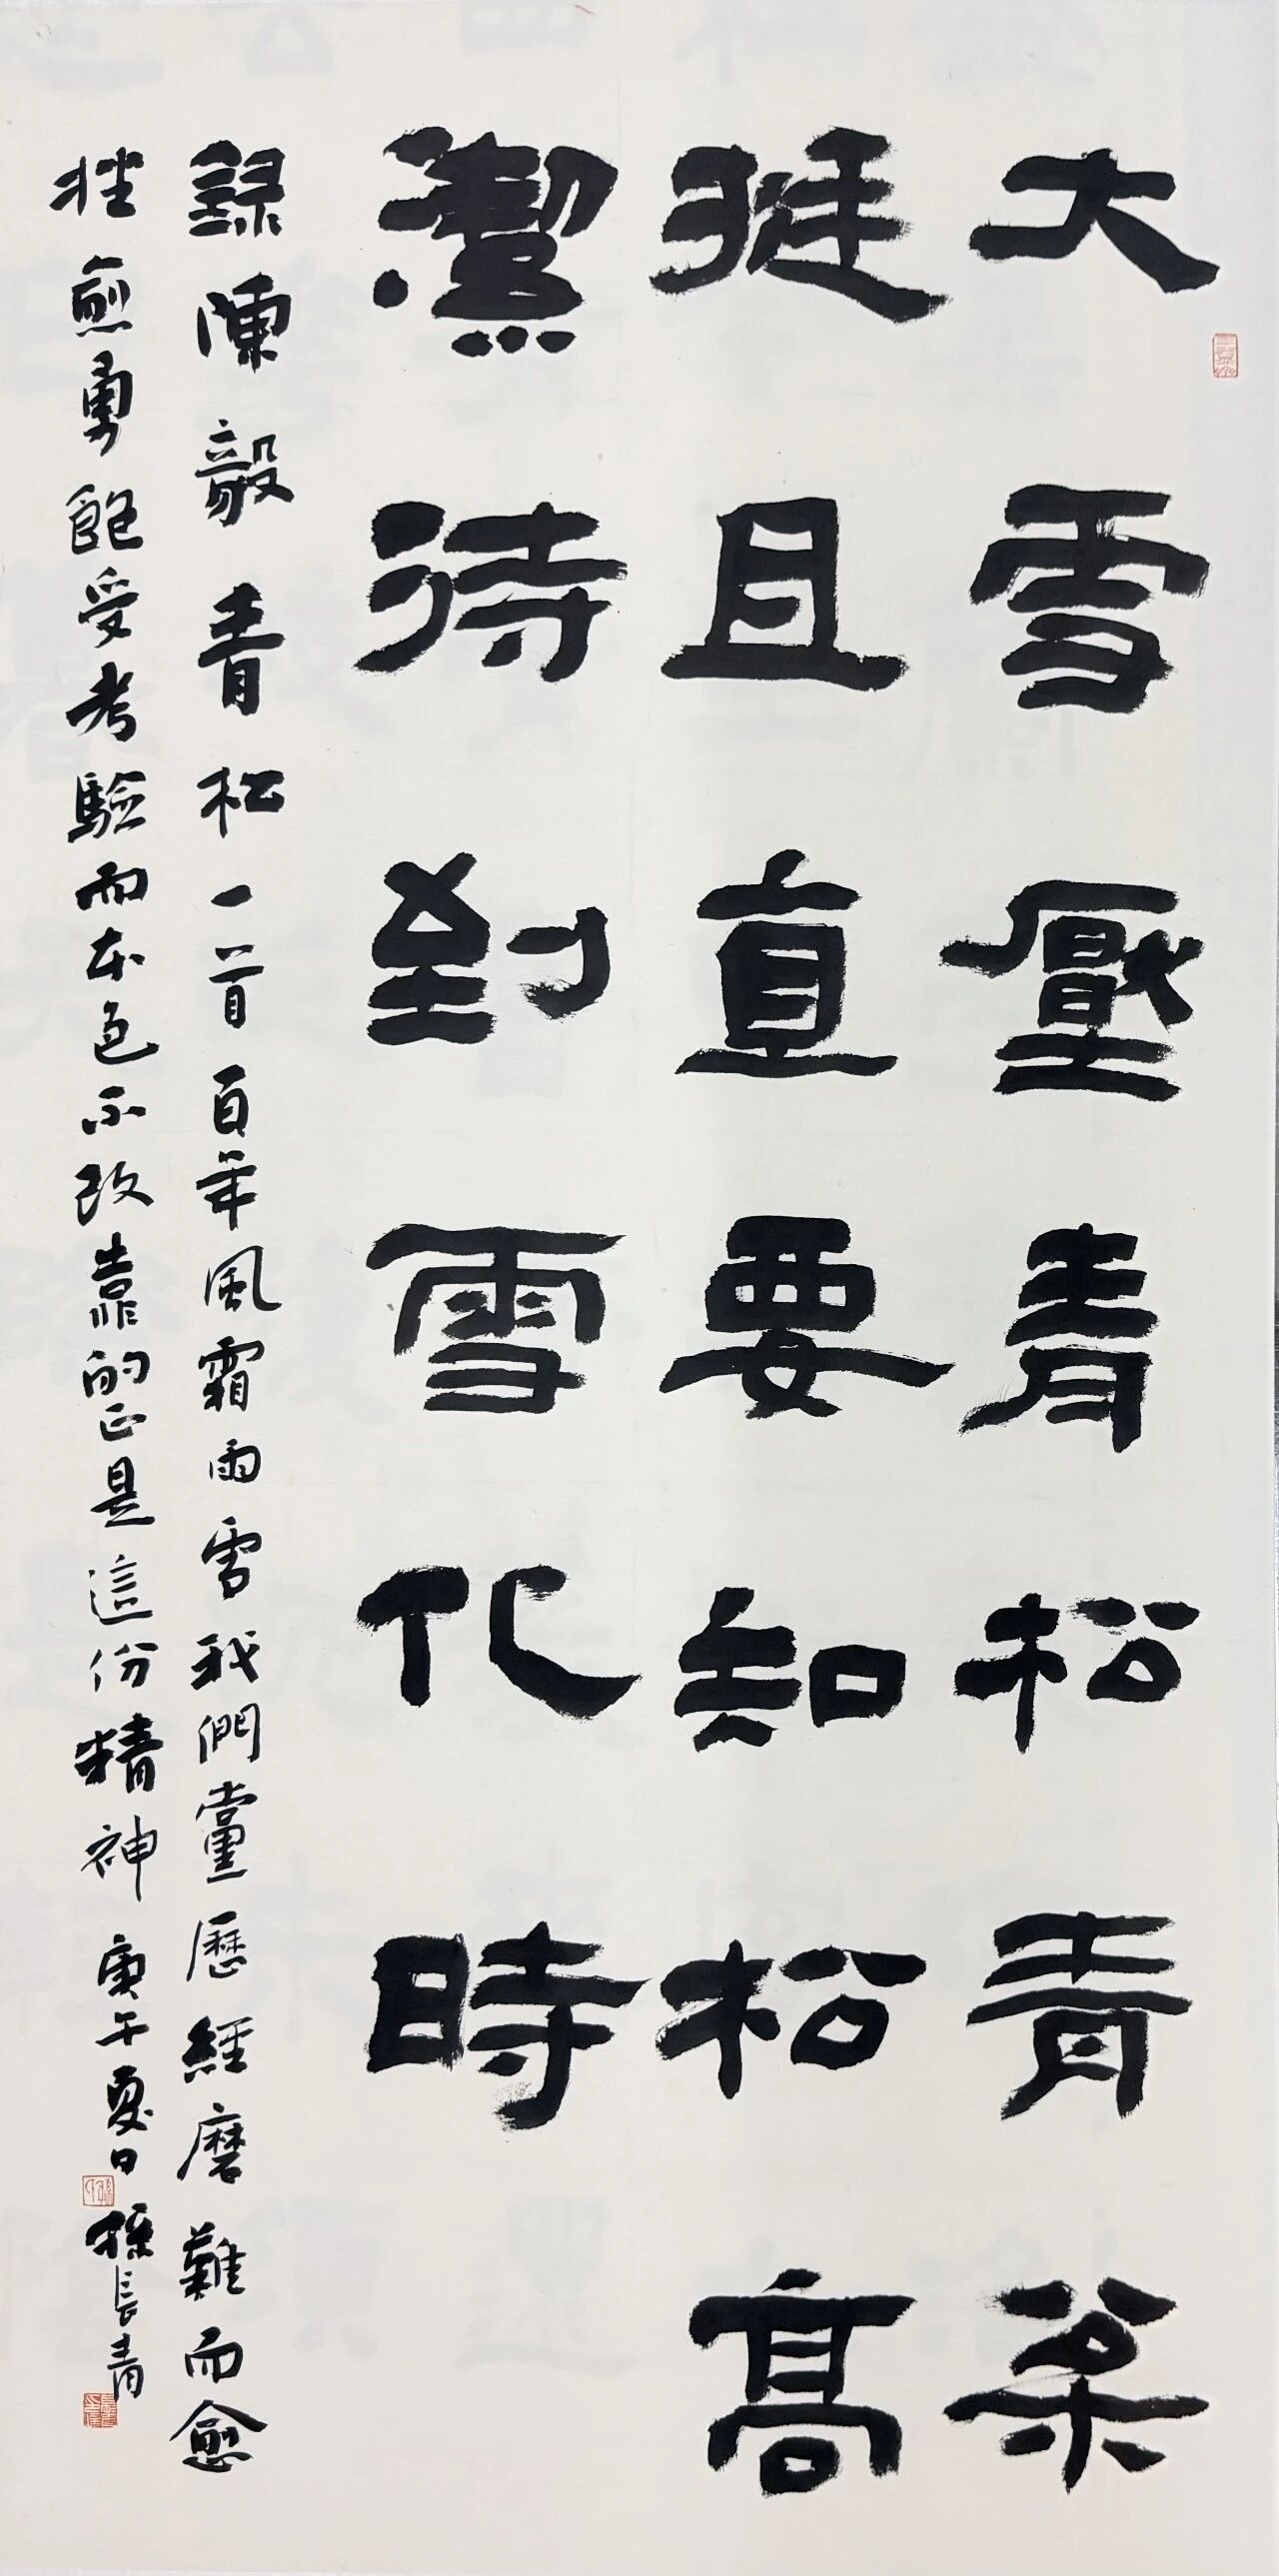 大雪壓青松青松
挺且直要知松高
潔待到雪化時
錄陳毅青松一首百年風霜雨雪我們黨歷經磨難而愈
挫愈勇飽受考驗而本色不改靠的正是這份精神庚午夏日孫長青